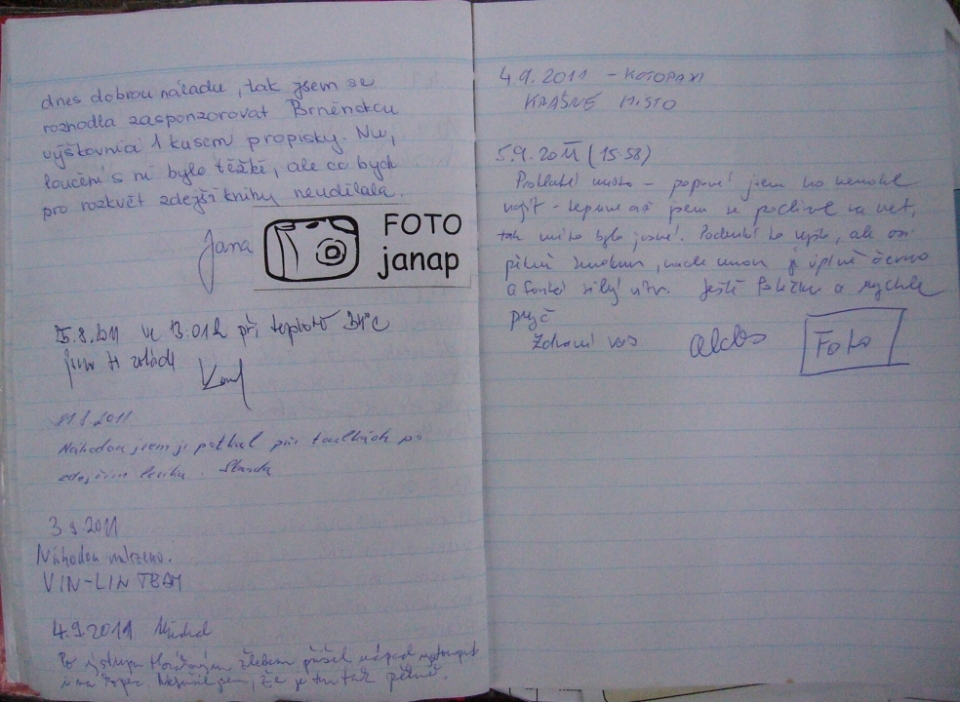 dnes dobrou náladu, tak jsem se
rozhodla zasponzorovat Brněnskou
výškovnici 1 kusem propisky. Nu,
loučení s ní bylo těžké, ale co bych
pro rozkvět zdejší knihy neudělala.
Jana
FOTO
janap
25.8.2011 ve 13.01h při teplotě 34°C
jsem to zvládl
Karel
31.8.2011
Náhodou jsem ji potkal při toulkách po
Standa
3.9.2011
Náhodou nalezeno.
VIN-LIN TEAM
4.9.2011 Michal
Po výstupu žlebem přišel nápad vystoupit
i na kopec. Netušil jsem, že je tu tak pěkně.
4.9.2011 - KOTOPAXI
KRÁSNÉ MÍSTO
5.9.2011 (15:58)
místo - poprvé jsem ho nemohl
najít - teprve až jsem se podíval na net,
tak místo bylo jasné. je lepší, ale
pěkně je úplně černo
a fouká silný vítr. Ještě fotečku a rychle
pryč
Zdraví vás
aldos
Foto